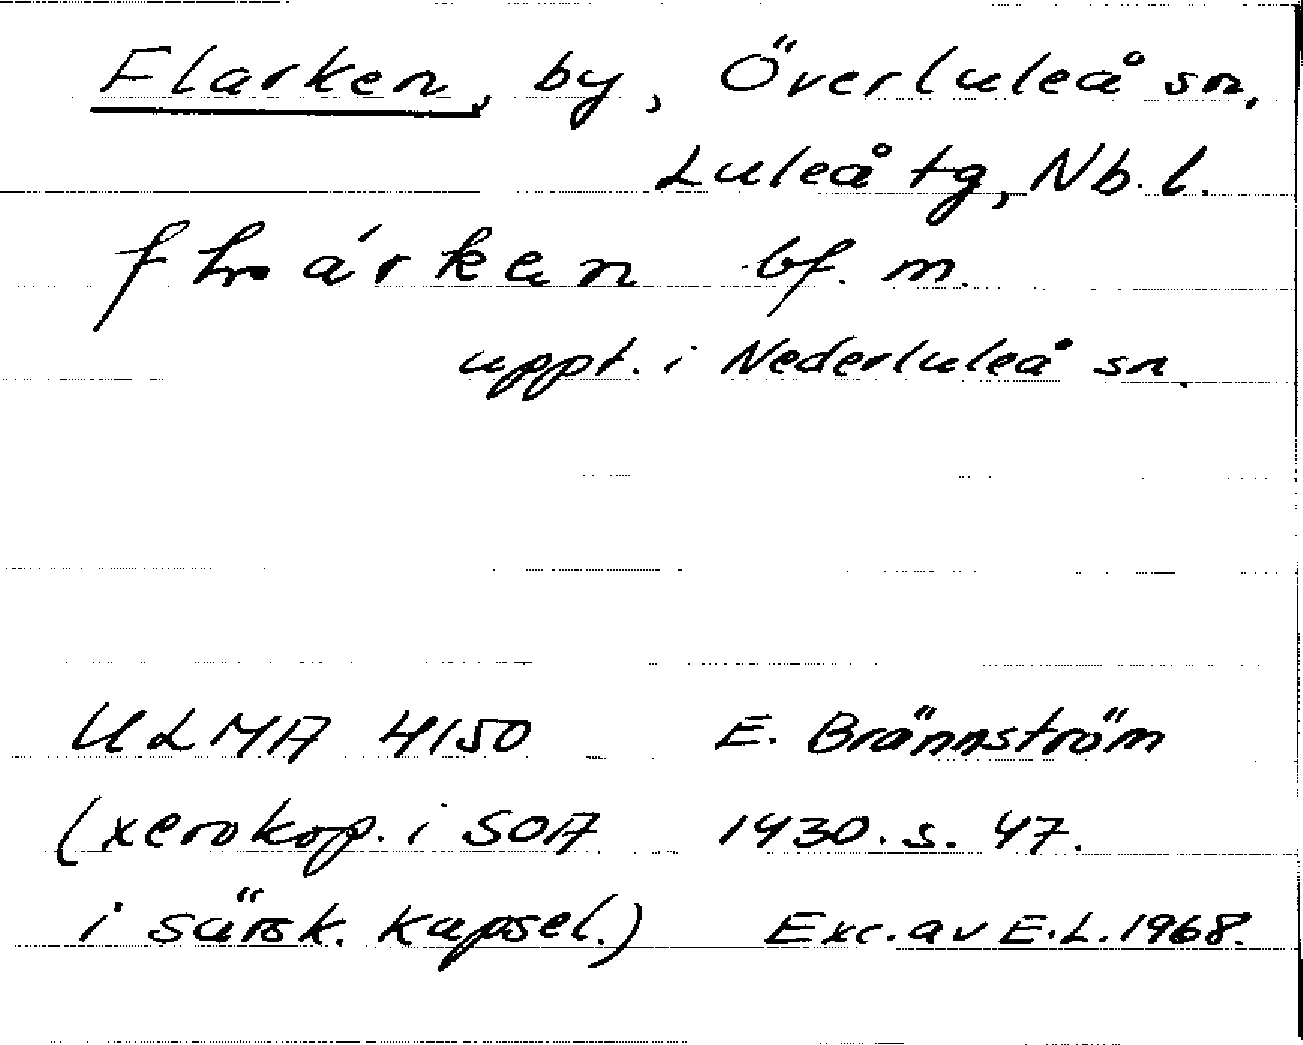 Flarken, by, Överluleå sn,
Luleå tg, Nb. l.
bf. m.
uppt. i Nederluleå sn.
ULMA 4150 E. Brännström
(xerokop. i SOA 1930. s. 47.
i särsk. kapsel.) Exc. av E.L. 1968.